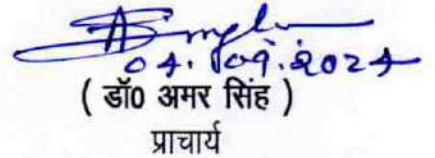 ASingh
04.09.2024
( डॉ0 अमर सिंह )
प्राचार्य